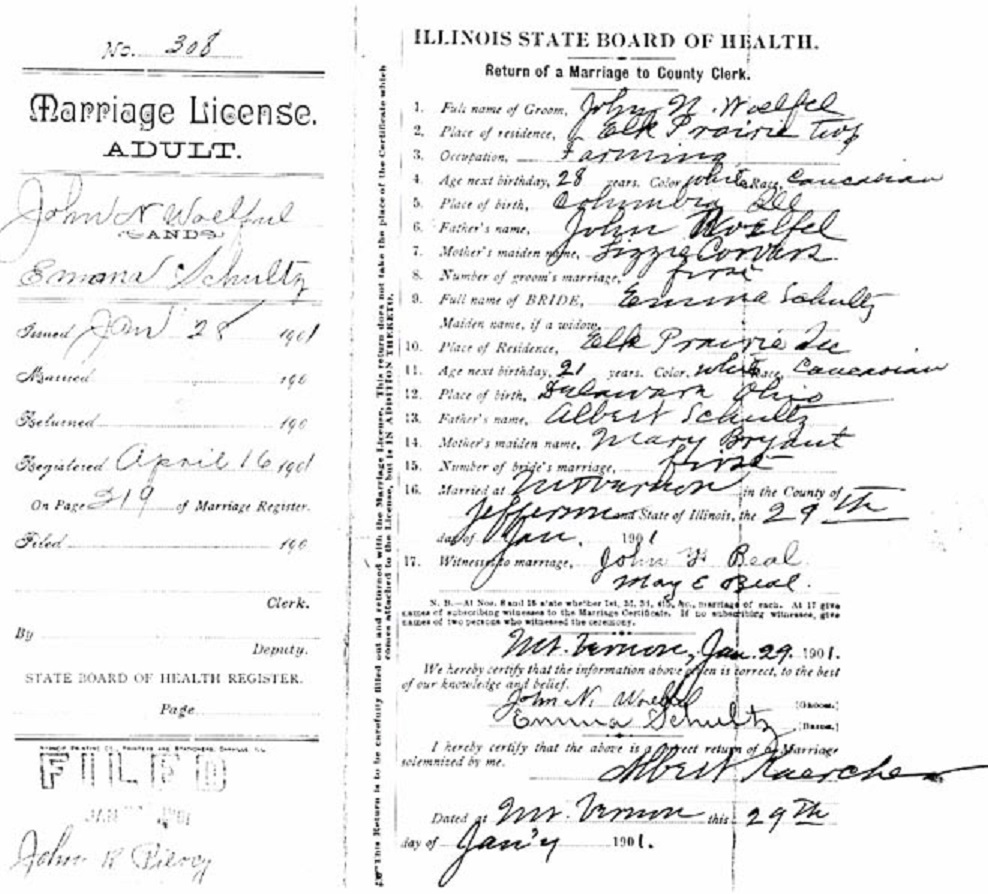 No. 308
Marriage License.
ADULT.
John N Woelful
AND
Emma Schultz
Issued Jan 28 1901
Married 190
Returned 190
Registered April 16 1901
On Page 319 of Marriage Register.
Filed 190
Clerk.
By
Deputy.
STATE BOARD OF HEALTH REGISTER.
Page
FILED
John R Piercy
This Return is to be carefully filled out and returned with the Marriage License. This return does not take the place of the Certificate which
comes attached to the License, but is IN ADDITION THERETO.
ILLINOIS STATE BOARD OF HEALTH.
Return of a Marriage to County Clerk.
1. Full name of Groom, John N. Woelfel
2. Place of residence, Elk Prairie Twp
3. Occupation, Farming
4. Age next birthday, 28 years. Color, white Race, Caucasian
5. Place of birth, Columbia Ill
6. Father's name, John Woelfel
7. Mother's maiden name, Lizzie
8. Number of groom's marriage, first
9. Full name of BRIDE, Emma Schultz
Maiden name, if a widow,
10. Place of Residence, Elk Prairie Ill
11. Age next birthday, 21 years. Color, white Race, Caucasian
12. Place of birth, Delaware Ohio
13. Father's name, Albert Schultz
14. Mother's maiden name, Mary Bryant
15. Number of bride's marriage, first
16. Married at Mt Vernon in the County of
Jefferson and State of Illinois, the 29th
day of Jan. 1901
17. Witnesses to marriage, John F Beal
May E Beal.
N. B.—At Nos. 8 and 15 state whether 1st, 2d, 3d, 4th, &c., marriage of each. At 17 give
names of subscribing witnesses to the Marriage Certificate. If no subscribing witnesses, give
names of two persons who witnessed the ceremony.
Mt. Vernon, Jan. 29. 1901.
We hereby certify that the information above given is correct, to the best
of our knowledge and belief.
John N. Woelfel [Groom.]
Emma Schultz [Bride.]
I hereby certify that the above is a correct return of a Marriage
solemnized by me.
Albert Kaercher
Dated at Mt. Vernon this 29th
day of Jan'y 1901.